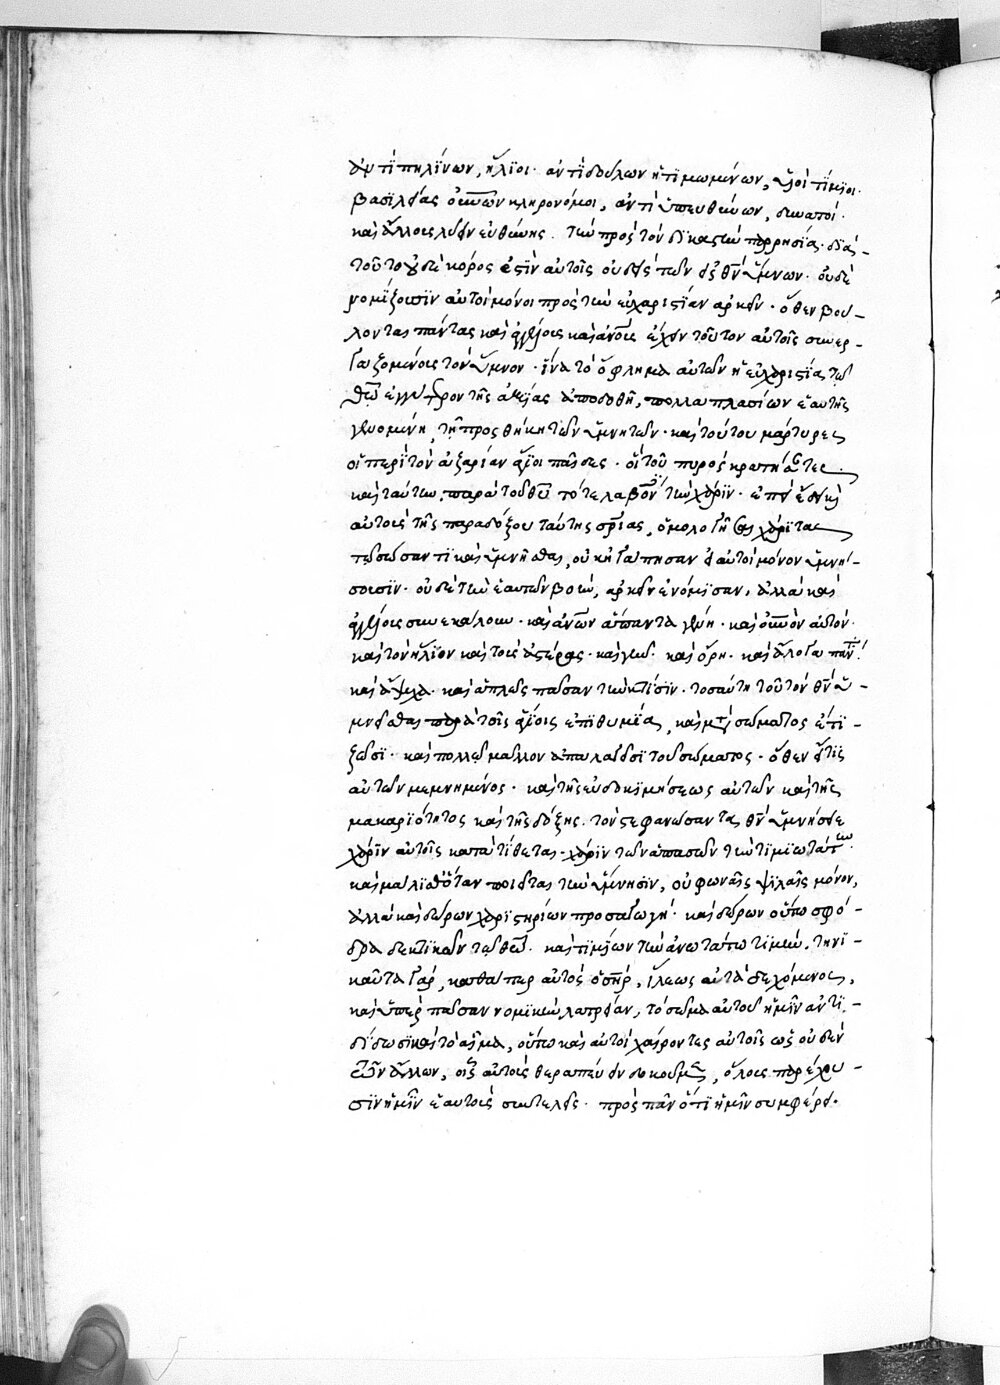 ἀντὶ πηλίνων, ἥλιοι· ἀντὶ δούλων ἠτιμωμένων, υἱοὶ τίμιοι·
βασιλείας οὐνῶν κληρονόμοι, ἀντὶ ὑπευθύνων, δυνατοὶ·
καὶ ἄλλους λύειν εὐθύνης. τὴν πρὸς τὸν δικαστὴν παρρησίᾳ· διὰ
τοῦτο οὐδὲ κόρος ἐστὶν αὐτοῖς οὐδεὶς τῶν εἰς θν ὕμνων· οὐδὲ
νομίζουσιν αὐτοὶ μόνοι πρὸς τὴν εὐχαριστίαν ἀρκεῖν· ὅθεν βού–
λονται πάντας καὶ ἀγγέλους καὶ ἀνους ἔχειν τοῦτον αὐτοῖς συνερ–
γαζομένους τὸν ὕμνον· ἵνα τὸ ὄφλημα αὐτῶν ἡ εὐχαριστία τῷ
θῶ ἐγγύτερον τῆς ἀξίας ἀποδοθῇ, πολλαπλασίων ἑαυτῆς
γενομένη, τῇ προσθήκῃ τῶν ὑμνητῶν· καὶ τούτου μάρτυρες
οἱ περὶ τὸν ἀζαρίαν ἅγιοι παῖδες· οἱ τοῦ πυρὸς κρατήσαντες
καὶ ταύτην παρὰ τοῦ θυ τότε λαβόντες τὴν χάριν· ἐπεὶ ἔδει
αὐτοὺς τῆς παραδόξου ταύτης σριας, ὁμολογῆσαι χάριτας
τῷ σώσαντι καὶ ὑμνῆσαι, οὐκ ἠγάπησαν εἰ αὐτοὶ μόνον ὑμνή–
σουσιν· οὐδὲ τὴν ἑαυτῶν βοὴν, ἀρκεῖν ἐνόμισαν, ἀλλὰ καὶ
ἀγγέλους συνεκάλουν· καὶ ἀνων ἅπαντα γένη· καὶ οὐνὸν αὐτὸν·
καὶ τὸν ἥλιον καὶ τοὺς ἀστέρας· καὶ γῆν· καὶ ὄρη· καὶ ἄλογα πάντα·
καὶ ἄψυχα· καὶ ἁπλῶς πᾶσαν τὴν κτίσιν· τοσαύτη τοῦ τὸν θν ὑ–
μνεῖσθαι παρὰ τοῖς ἁγίοις ἐπιθυμία, καὶ μετὰ σώματος ἔτι
ζῶσι· καὶ πολλῷ μᾶλλον ἀπαλαγεῖσι τοῦ σώματος· ὅθεν εἴ τις
αὐτῶν μεμνημένος· καὶ τῆς εὐδοκιμήσεως αὐτῶν καὶ τῆς
μακαριότητος καὶ τῆς δόξης· τὸν στεφανώσαντα θν ὑμνήσειε
χάριν αὐτοῖς κατατίθεται· χάριν τῶν ἁπασῶν τὴν τιμιωτάτην·
καὶ μάλιστα ὅταν ποιῆται τὴν ὕμνησιν, οὐ φωναῖς ψιλαῖς μόνον,
ἀλλὰ καὶ δώρων χαριστηρίων προσαγωγῇ· καὶ δώρων οὕτω σφό–
δρα δεκτικῶν τῷ θῶ· καὶ τιμίων τὴν ἀνωτάτω τιμὴν· τηνι–
καῦτα γάρ, καθάπερ αὐτὸς ὁ σηρ, ἵλεως αὐτὰ δεχόμενος,
καὶ ὑπὲρ πᾶσαν νομικὴν λατρείαν, τὸ σῶμα αὐτοῦ ἡμῖν ἀντι–
δίδωσι καὶ τὸ αἷμα, οὕτω καὶ αὐτοὶ χαίροντες αὐτοῖς ὡς οὐδενὶ
τῶν ἄλλων, οἷς αὐτοὺς θεραπεύειν δοκοῦμεν, ὅλους παρέχου–
σιν ἡμῖν ἑαυτοὺς συντελεῖς· πρὸς πᾶν ὅτι ἡμῖν συμφέρει·